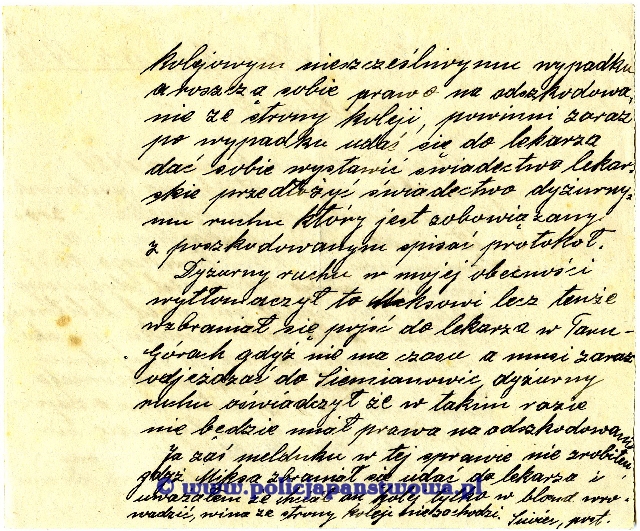 kolejowym nieszczęśliwymu wypadku
a roszcza sobie prawo na odszkodowa-
nie ze strony koleji, powinni zaraz
po wypadku udaś się do lekarza
dać sobie wystawić świadectwo lekar-
skie przedłożyć świadectwo dyżurny-
mu ruchu który jest zobowiązany
z poszkodowanym spisać protokoł.
Dyżurny ruchu w mojej obecności
wytłomaczył to Miksowi lecz tenże
wzbraniał się pojść do lekarza w Tarn-
Górach gdyż nie ma czasu a musi zaraz
odjeżdzaś do Siemianowic, dyżurny
ruchu oświadczył że w takim razie
nie będzie miał prawa na odszkodowanie
Ja zaś melduku w tej sprawie nie zrobiłem
gdyż Miksa zbraniał się udaś do lekarza i
uważałem że chciał on kolej tylko w bland wro-
wadzić, wina ze strony koleje niezachodzi.
© www.policjapanstwowa.pl